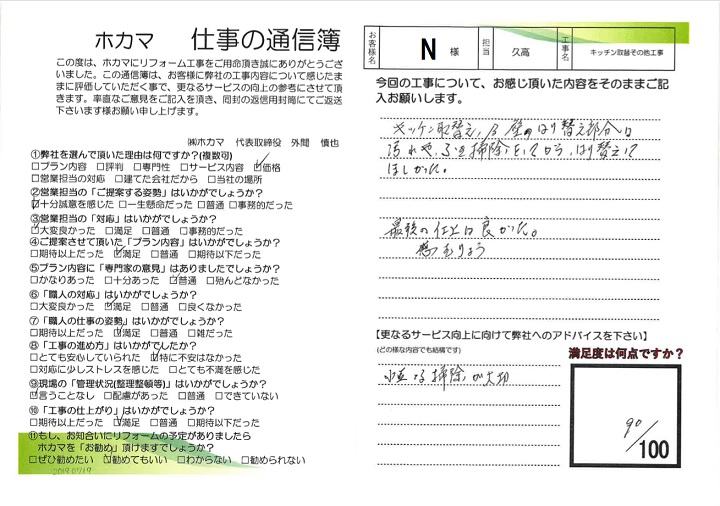 ホカマ 仕事の通信簿
この度は、ホカマにリフォーム工事をご用命頂き誠にありがとうござ
いました。この通信簿は、お客様に弊社の工事内容について感じたま
まに評価していただく事で、更なるサービスの向上の参考にさせて頂
きます。率直なご意見をご記入を頂き、同封の返信用封筒にてご返送
下さいます様お願い申し上げます。
㈱ホカマ 代表取締役 外間 慎也
①弊社を選んで頂いた理由は何ですか?(複数可)
□プラン内容 □評判 □専門性 □サービス内容 ☑価格
□営業担当の対応 □建てた会社だから □当社の場所
②営業担当の「ご提案する姿勢」はいかがでしょうか?
☑十分誠意を感じた □一生懸命だった □普通 □事務的だった
③営業担当の「対応」はいかがでしょうか?
☑大変良かった □満足 □普通 □事務的だった
④ご提案させて頂いた「プラン内容」はいかがでしょうか?
□期待以上だった ☑満足 □普通 □期待以下だった
⑤プラン内容に「専門家の意見」はありましたでしょうか?
□かなりあった □十分あった ☑普通 □殆んどなかった
⑥「職人の対応」はいかがでしょうか?
□大変良かった ☑満足 □普通 □良くなかった
⑦「職人の仕事の姿勢」はいかがでしょうか?
□期待以上だった ☑満足 □普通 □雑だった
⑧「工事の進め方」はいかがでしたか?
□とても安心していられた ☑特に不安はなかった
□対応に少しストレスを感じた □とても不満を感じた
⑨現場の「管理状況(整理整頓等)」はいかがでしょうか?
☑言うことなし □配慮があった □普通 □できていない
⑩「工事の仕上がり」はいかがでしょうか?
□期待以上だった ☑満足 □普通 □期待以下だった
⑪もし、お知合いにリフォームの予定がありましたら
ホカマを「お勧め」頂けますでしょうか?
□ぜひ勧めたい ☑勧めてもいい □わからない □勧められない
お客様名 N 様 担当 久高 工事名 キッチン取替その他工事
今回の工事について、お感じ頂いた内容をそのままご記
入お願いします。
キッチン取替え、
はり替え部分は
汚れや
掃除をしてから、はり替えして
ほしかった。
最後の仕上は良かった。
【更なるサービス向上に向けて弊社へのアドバイスを下さい】
(どの様な内容でも結構です)
満足度は何点ですか?
掃除が大切
90/100